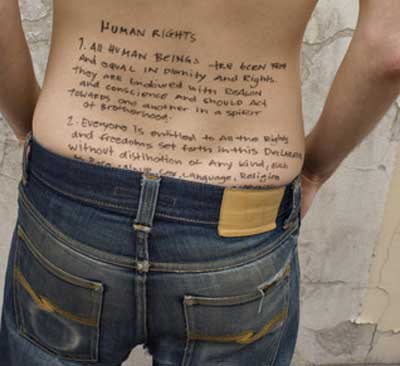 HUMAN RIGHTS
1. All HUMAN BEINGS are BORN FREE
And EQUAL IN Dignity And Rights.
they are Endowed with REASON
and conscience and SHOULD Act
TOWARDS one another in a SPIRIT
of Brotherhood.
2. Everyone is entitled to All the Rights
and freedoms set forth in this Declaration
without distinction of Any kind, such
as Race, colour, Sex, Language, Religion